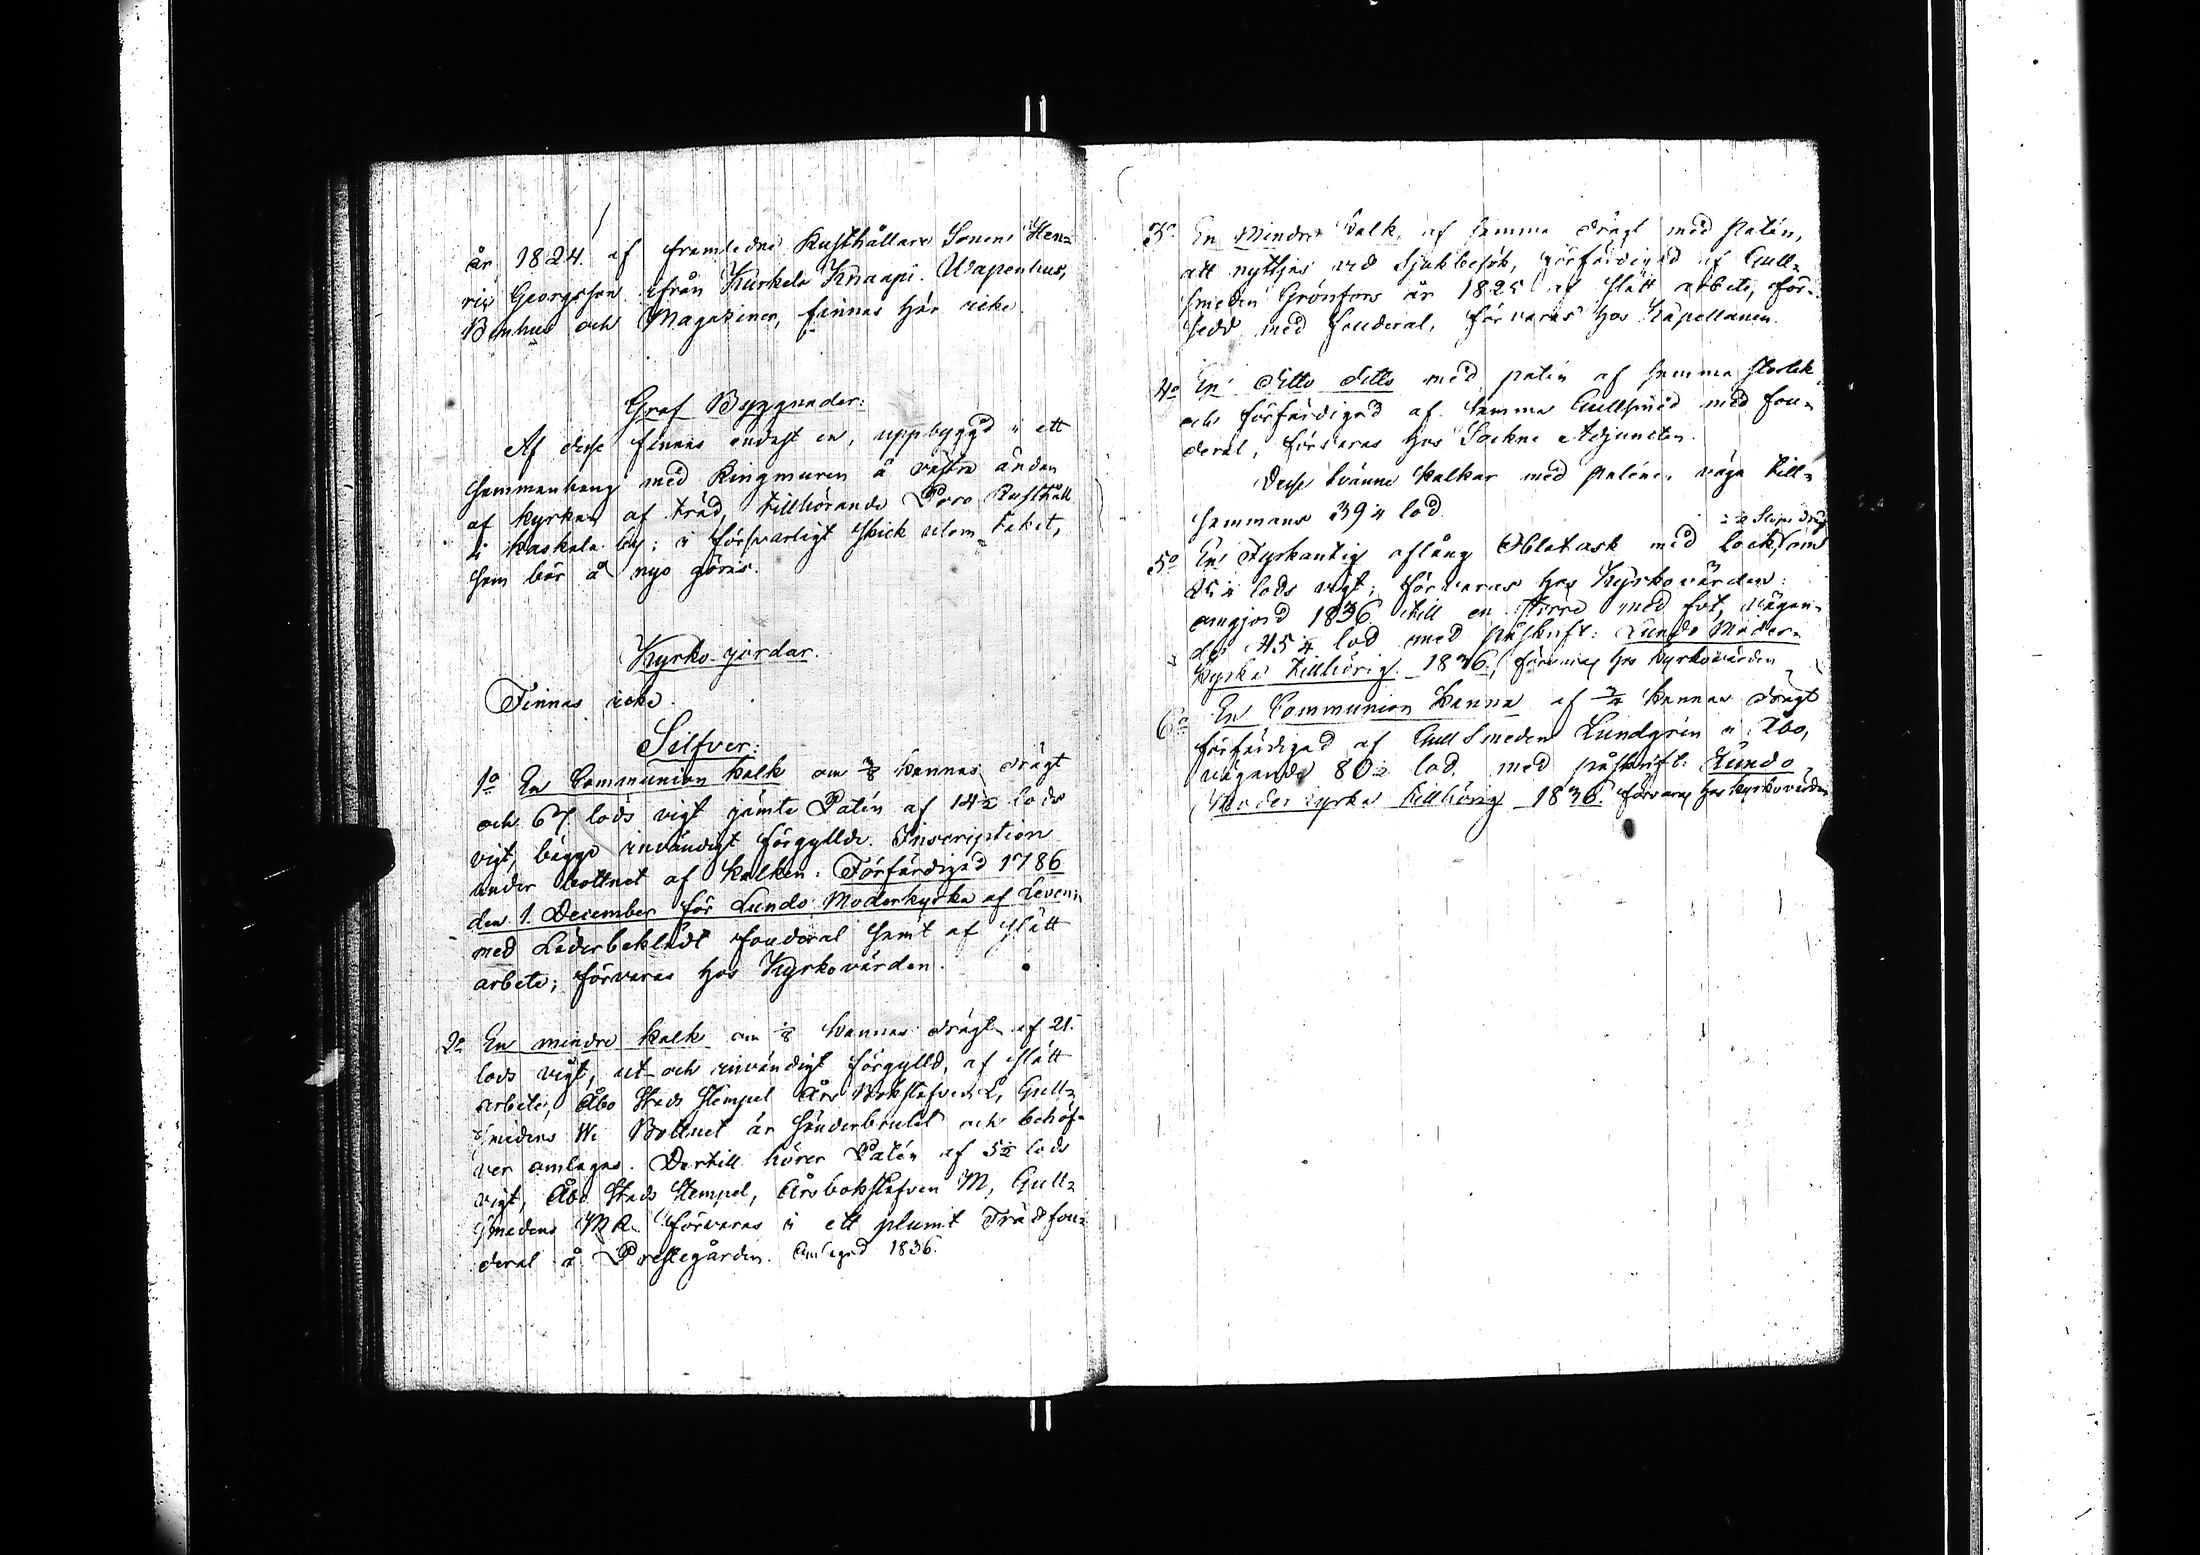 år 1824 af framledne Rusthållare Sonen Hen-
ric Georgsson ifrån Kurkela Knaapi. Wapenhus,
Benhus och Magaziner, finnas här icke.
Graf Byggnader:
Af desse finnes endast en, uppbyggd i ett
sammanhang med Ringmuren å vestra ändan
af kyrkan af träd, tillhörande Poso Rusthåll
i Kaskala by; i försvarligt skick utom taket,
som bör å nyo göras.
Kyrko-jordar.
Finnas icke.
Silfver:
1o En Communion kalk om 3/8 kannas drägt
och 67 lods vigt jämte Patén af 14 1/2 lods
vigt, bägge invändigt förgyllde. Inscription
under bottnet af kalken: Förfärdigad 1786
den 1. December för Lundo Moderkyrka af Leven
med Läderbeklädt fouderal samt af slätt
arbete; förvaras hos Kyrkovärden.
2o En mindre kalk om 1/8 kannas drägt af 21
lods vigt, ut- och invändigt förgylld, af slätt
arbete, Åbo Stads Stempel Års Bokstafven L, Gull-
smedens Bottnet är sönderbrutet och behöf-
ver omlagas. Dertill hörer Patén af 5 1/2 lods
vigt, Åbo Stads Stempel, Årsbokstafven M, Gull-
smedens förvaras i ett plumt Trädfou-
deral å Prestegården. Omlagad 1836.
3o En Mindre kalk, af samma drägt med Patén,
att nyttjas vid Sjukbesök, förfärdigad af Gull-
smeden Grönfors år 1825 af slätt arbete, för-
sedd med fouderal, förvaras hos Kapellanen.
4o En ditto ditto med patén af samma storlek
och förfärdigad af samma Gullsmed med fou-
deral, förvaras hos Sockne Adjuncten.
Desse tvänne kalkar med paténer väga till-
sammans 39 1/4 lod.
5o En Fyrkantig aflång Oblatask med lock, om
lods vigt; förvaras hos Kyrkovärden:
omgjord 1836 till en större med fot, vägan-
de 45 1/4 lod med påskrift: Lundo Moder-
kyrka tillhörig 1836, förvaras hos Kyrkovärden
6o En Communion Kanna af 3/4 kannas drägt
förfärdigad af Gull Smeden Lundgrén i Åbo,
vägande 80 1/2 lod med påskrift: Lundo
Moderkyrka tillhörig 1836. förvaras hos kyrkovärden